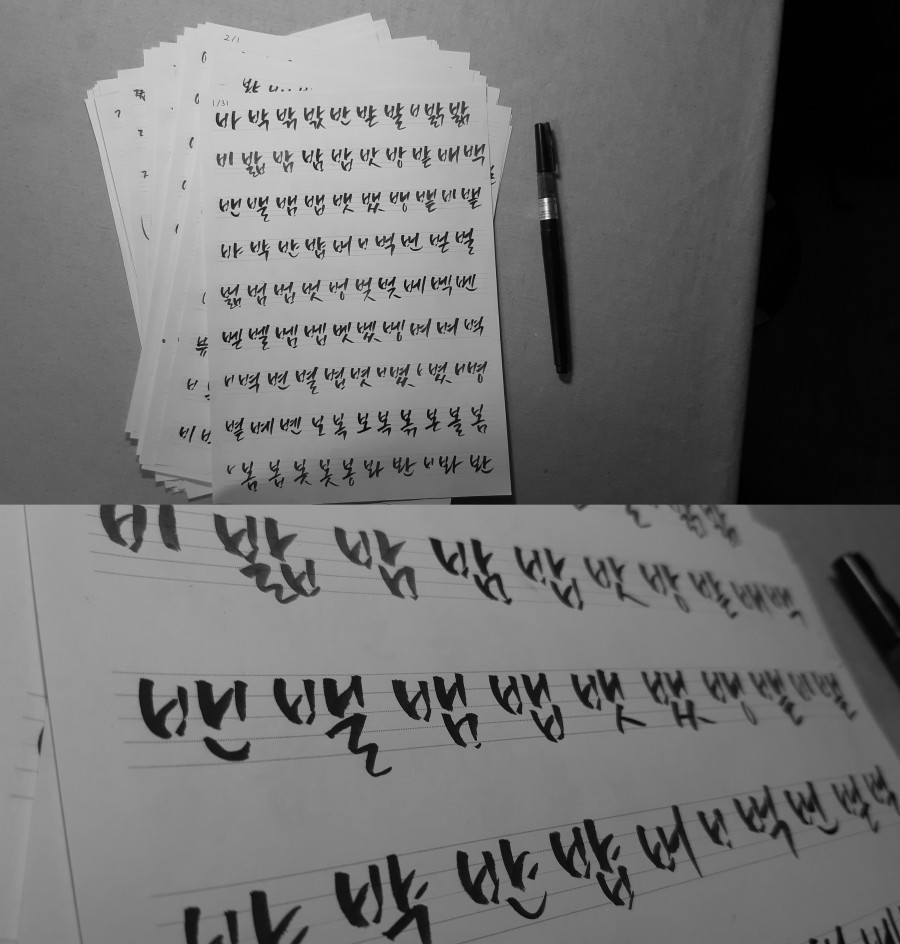 2/1
1/31
바 박 밖 밗 반 받 발 밝 밞
비 밟 밤 밤 밥 밧 방 밭 배 백
밴 밸 뱀 뱁 뱃 뱄 뱅 뱉 비 뱉
뱌 뱍 뱐 뱝 버 벅 번 벋 벌
벎 범 법 벗 벙 벚 벚 베 벡 벤
벧 벨 벰 벱 벳 벴 벵 벼 벼 벽
벽 변 별 볍 볏 볐 볐 병
볕 볘 볜 보 복 보 복 볶 본 볼 봄
봄 봅 봇 봇 봉 봐 봔 봐 봔
비 밟 밤 밤 밥 밧 방 밭 배 백
밴 밸 뱀 뱁 뱃 뱄 뱅 뱉 비 뱉
뱌 뱍 뱐 뱝 버 벅 번 벋 벌